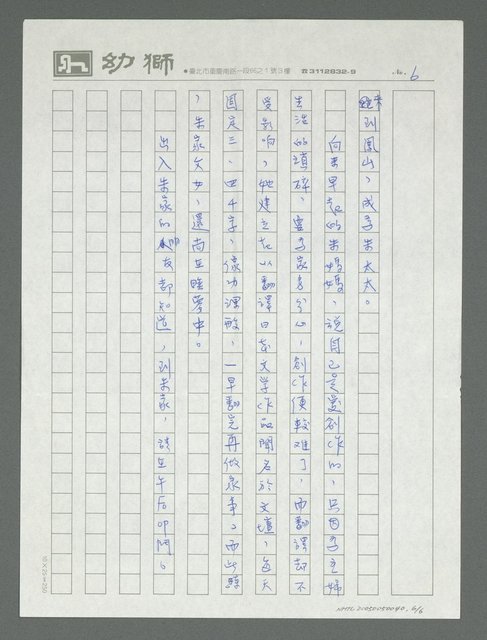 幼獅
●臺北市重慶南路一段66之1號3樓 ☎3112832-9
No. 6
到鳳山，成了朱太太。
向來早起的朱媽媽，說自己是愛創作的，只因了主婦
生活的瑣碎，容易家務分心，創作便較難了，而翻譯却不
受影响，她建立起以翻譯日本文学作品聞名於文壇，每天
固定三、四千字，像功課般，一早翻完再做家事。而此時
，朱家父女，還尚在睡夢中。
出入朱家的朋友都知道，到朱家，請在午后叩門。
10×25=250